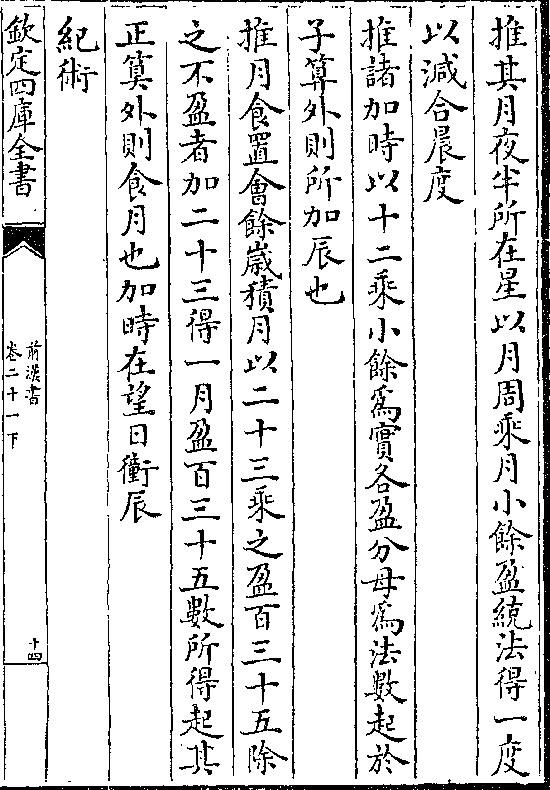 推其月夜半所在星以月周乘月小餘盈統法得一度
以減合晨度
推諸加時以十二乘小餘爲實各盈分母爲法數起於
子算外則所加辰也
推月食置會餘嵗積月以二十三乘之盈百三十五除
之不盈者加二十三得一月盈百三十五數所得起其
正算外則食月也加時在望日衝辰
紀術
欽定四庫全書
前漢書
卷二十一下
十四